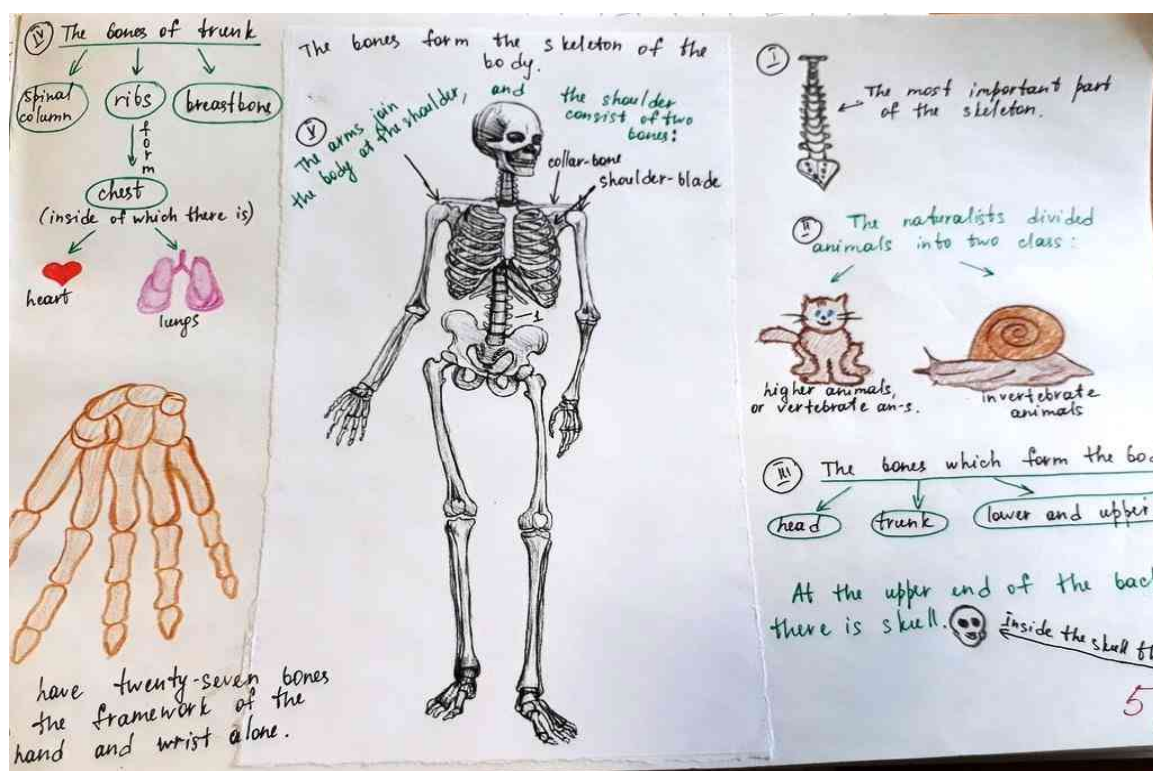 IV The bones of trunk
spinal
column
ribs
breastbone
form
chest
(inside of which there is)
heart
lungs
have twenty-seven bones
the framework of the
hand and wrist alone.
The bones form the skeleton of the
body.
V The arms join
the body at the shoulder,
and
the shoulder
consist of two
bones:
collar-bone
shoulder-blade
1
I
The most important part
of the skeleton.
II The naturalists divided
animals into two class:
higher animals,
or vertebrate an-s.
invertebrate
animals
III The bones which form the
head
trunk
lower and upper
At the upper end of the
there is skull.
inside the skull
5